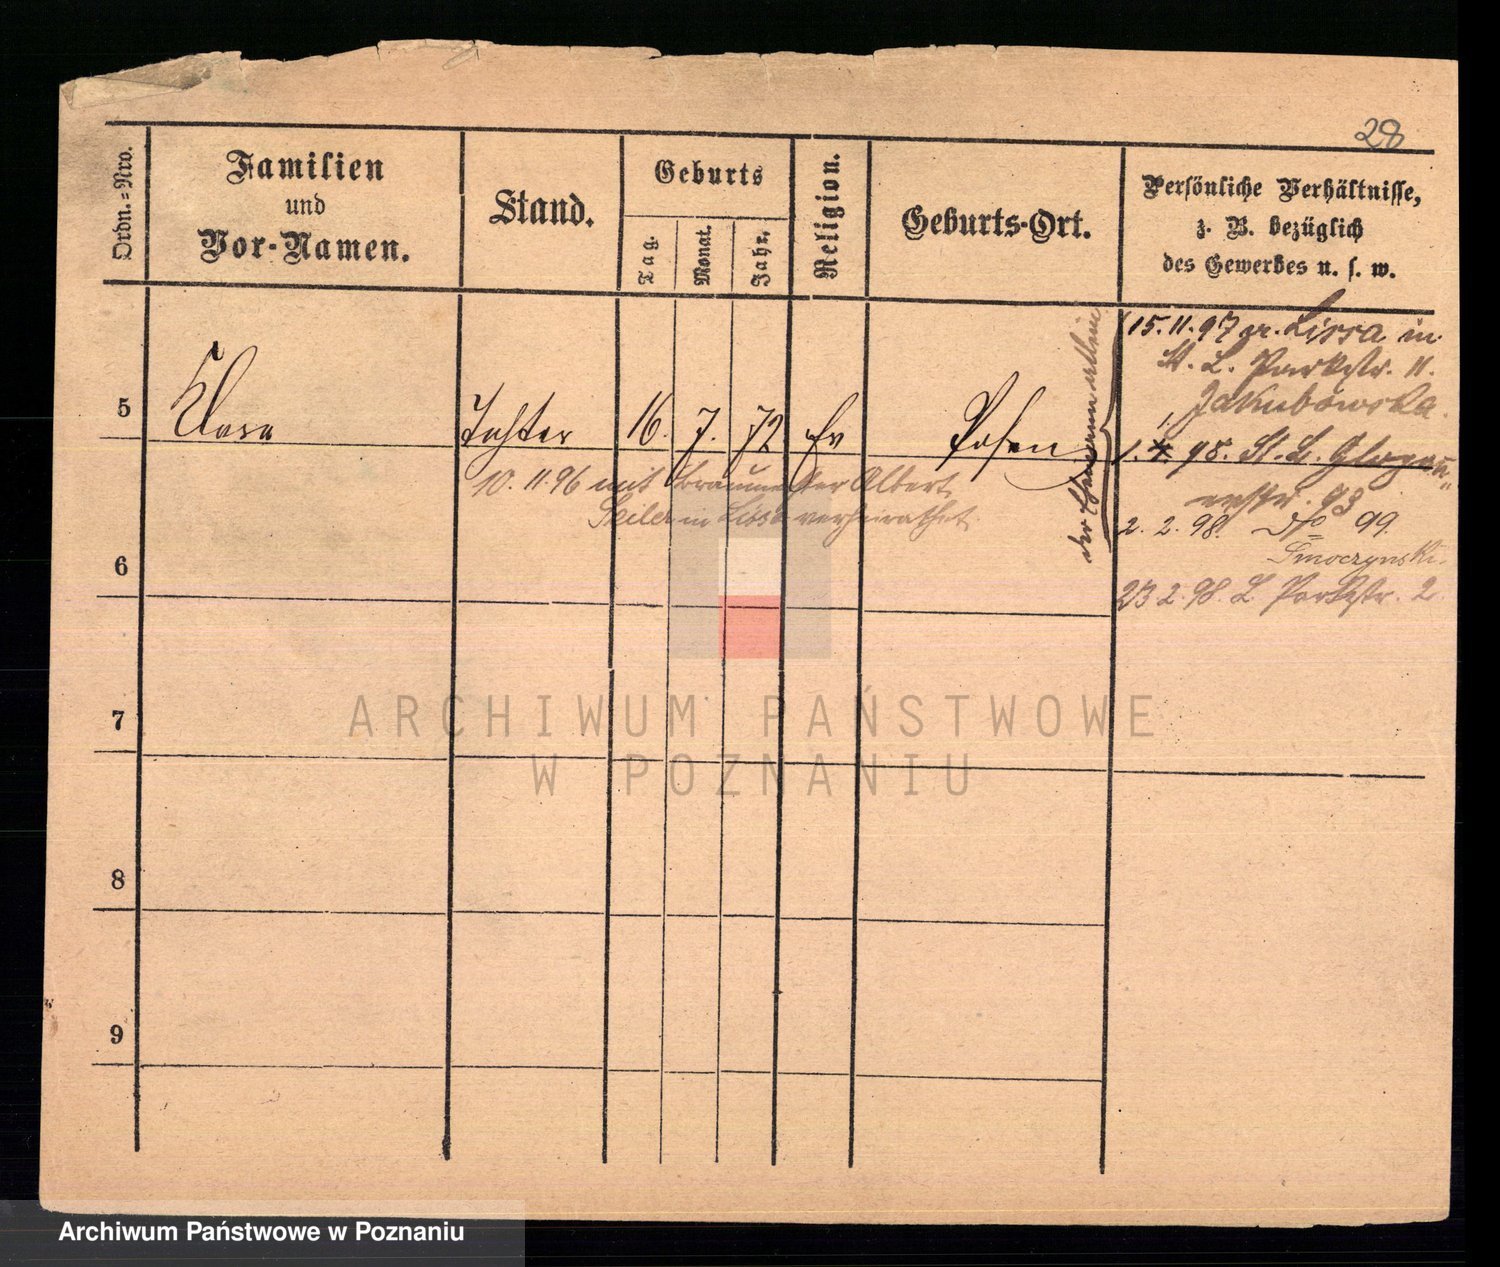 28
Ordn.-Nro.
Familien
und
Vor-Namen.
Stand.
Geburts
Tag.
Monat.
Jahr.
Religion.
Geburts-Ort.
Persönliche Verhältnisse,
z. B. bezüglich
des Gewerbes u. s. w.
5
Clara
Tochter
16.
7.
72
Ev
Posen
10. 11. 96 mit Albert
Seiler in Lissa verheirathet
der Ehemann allein
15. 11. 97 Lissa in
St. L. Parkstr. 11.
Jakubowska.
98. St. L. Glogau-
erstr. 93
2. 2. 98. dto 99.
Smoczynski.
23 2. 98. L. Parkstr. 2.
6
7
8
9
ARCHIWUM PAŃSTWOWE
W POZNANIU
Archiwum Państwowe w Poznaniu